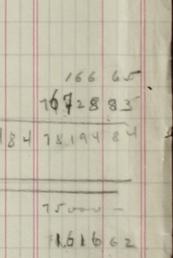 166 65
167288 85
184 78194 84
75000 -
161662